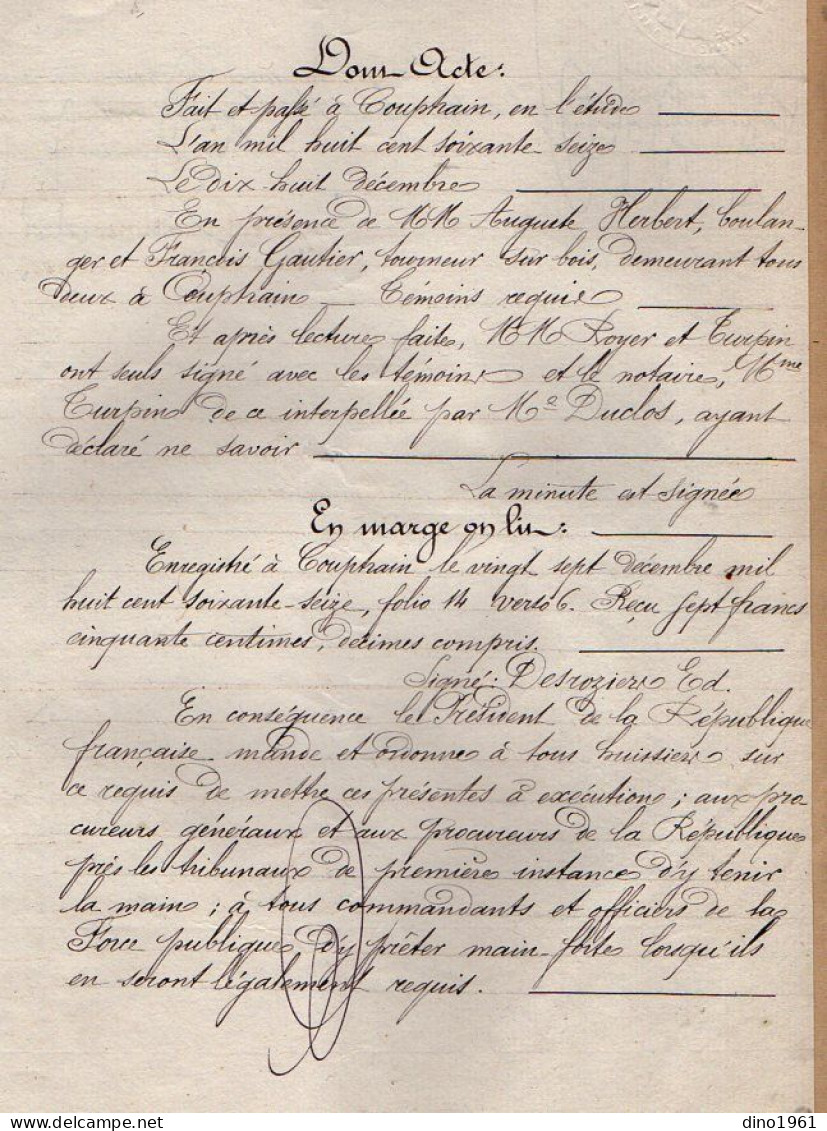 Dont Acte:
Fait et passé à Couptrain, en l'étude
L'an mil huit cent soixante-seize
Le dix-huit décembre
En présence de MM Auguste Herbert, boulan-
ger et François Gautier, tourneur sur bois, demeurant tous
deux à Couptrain — Témoins requis
Et après lecture faite, MM Royer et Turpin
ont seuls signé avec les témoins et le notaire, Mme
Turpin de ce interpellée par Me Duclos, ayant
déclaré ne savoir
La minute est signée
En marge on lit:
Enregistré à Couptrain le vingt sept décembre mil
huit cent soixante-seize, folio 14 verso 6. Reçu sept francs
cinquante centimes, décimes compris.
Signé: Desroziers Ed.
En conséquence le Président de la République
française mande et ordonne à tous huissiers sur
ce requis de mettre ces présentes à exécution; aux pro
cureurs généraux et aux procureurs de la République
près les tribunaux de première instance d'y tenir
la main; à tous commandants et officiers de la
Force publique d'y prêter main-forte lorsqu'ils
en seront légalement requis.
dino1961